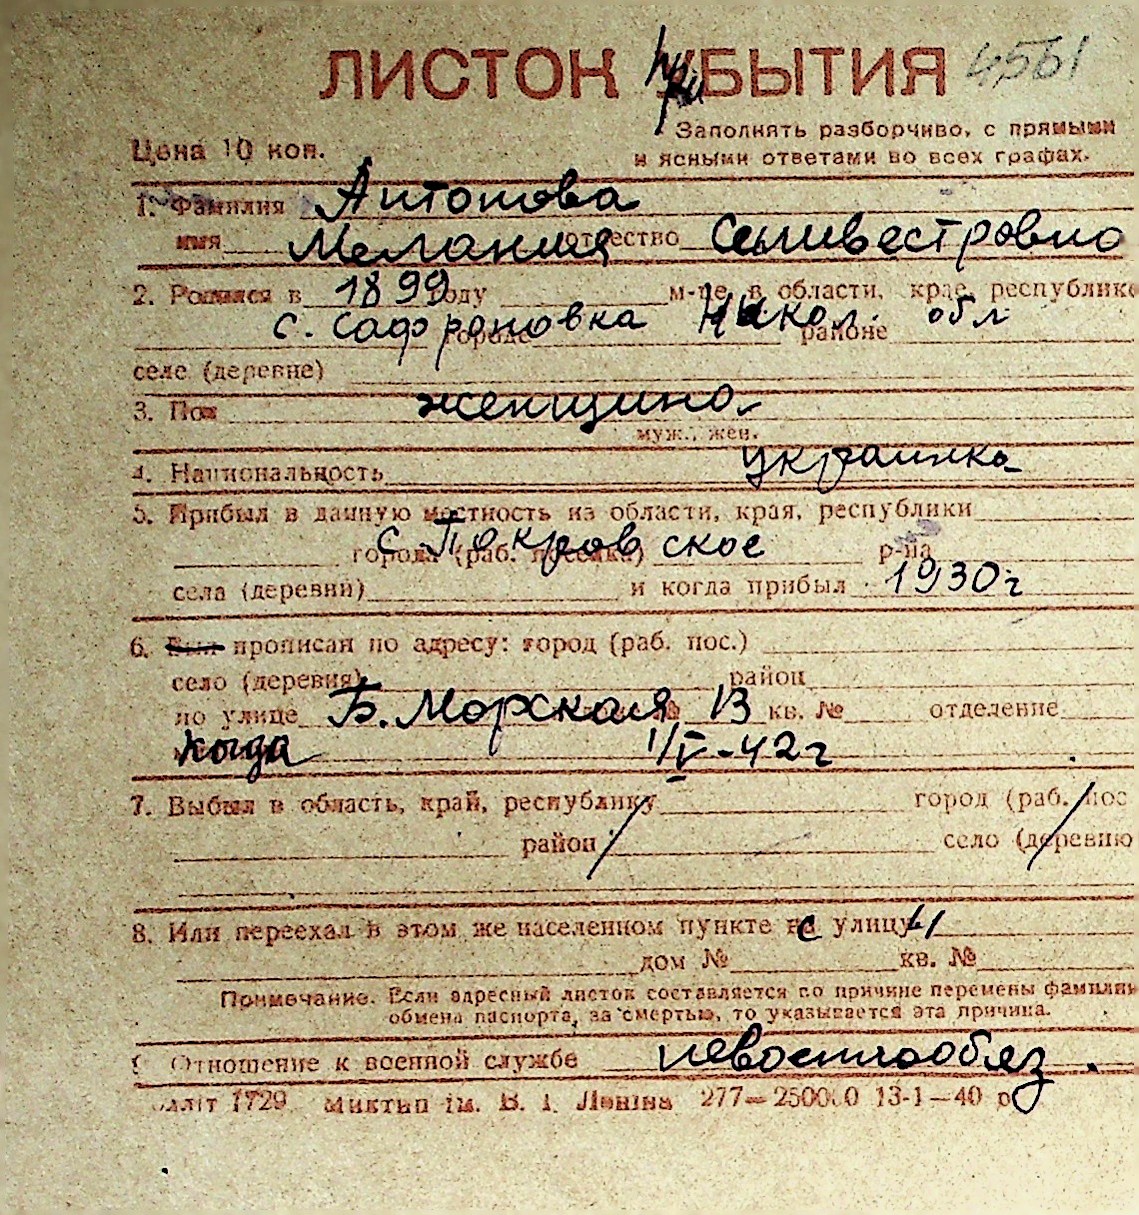 ЛИСТОК при БЫТИЯ 4561
Цена 10 коп.
Заполнять разборчиво, с прямыми
и ясными ответами во всех графах.
1. Фамилия Антонова
имя Мелания отчество Сельвестровно
2. Родился в 1899 году м-це, в области, крае, республике
с. Сафроновка Никол. обл городе районе
селе (деревне)
3. Пол женщина
муж., жен.
4. Национальность украинка
5. Прибыл в данную местность из области, края, республики
города (раб. поселка) с. Покровское р-на
села (деревни) и когда прибыл 1930г
6. Был прописан по адресу: город (раб. пос.)
село (деревня) район
по улице Б. Морская № 13 кв. № отделение
когда 1/V-42г
7. Выбыл в область, край, республику город (раб. пос
район село (деревню
8. Или переехал в этом же населенном пункте с улицы
дом № кв. №
Примечание. Если адресный листок составляется по причине перемены фамилии
обмена паспорта, за смертью, то указывается эта причина.
9 Отношение к военной службе невоеннообяз.
лліт 1729 Миктып ім. В. І. Леніна 277—250000 13-1—40 р